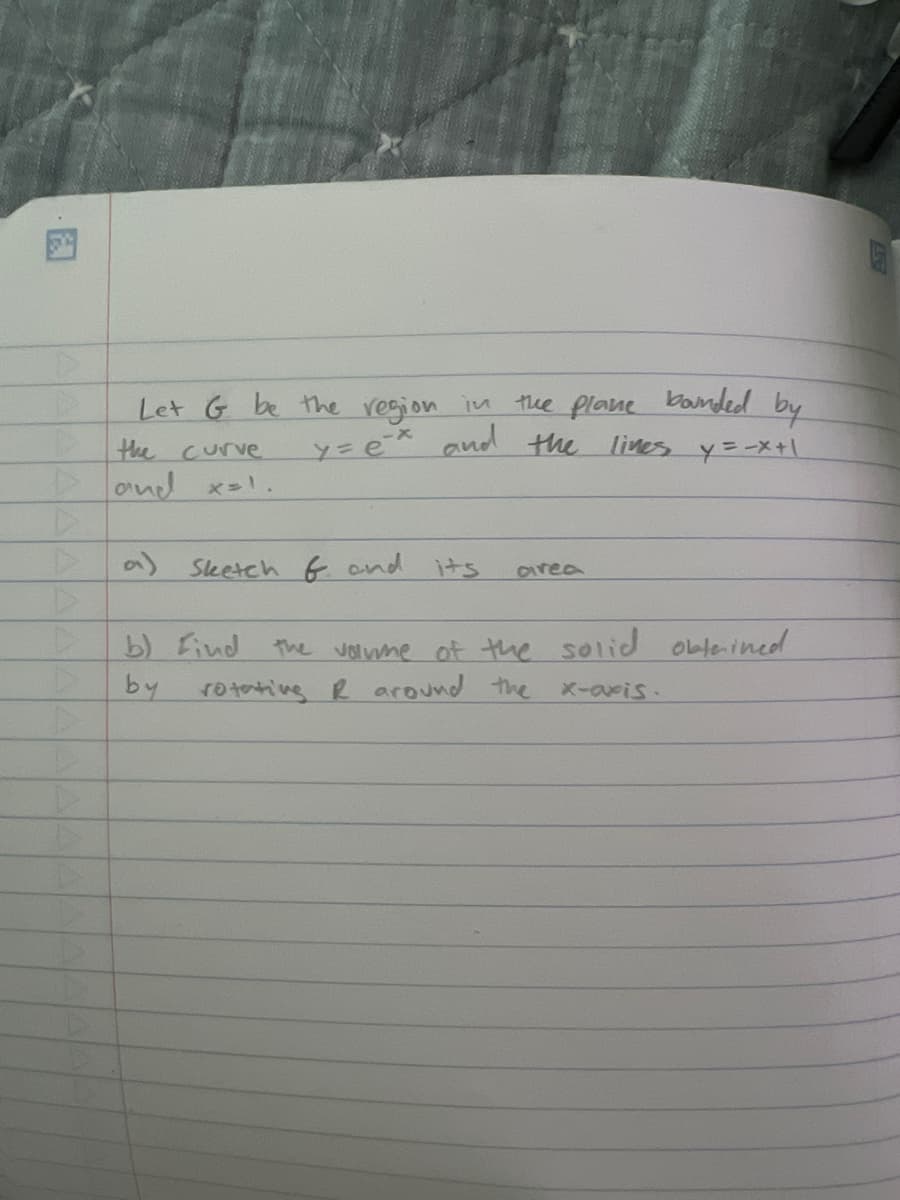 Let G be the region in the plane bounded by
the curve y = e^-x and the lines y = -x+1
and x=1.
a) Sketch G and its area
b) Find the volume of the solid obtained
by rotating R around the x-axis.